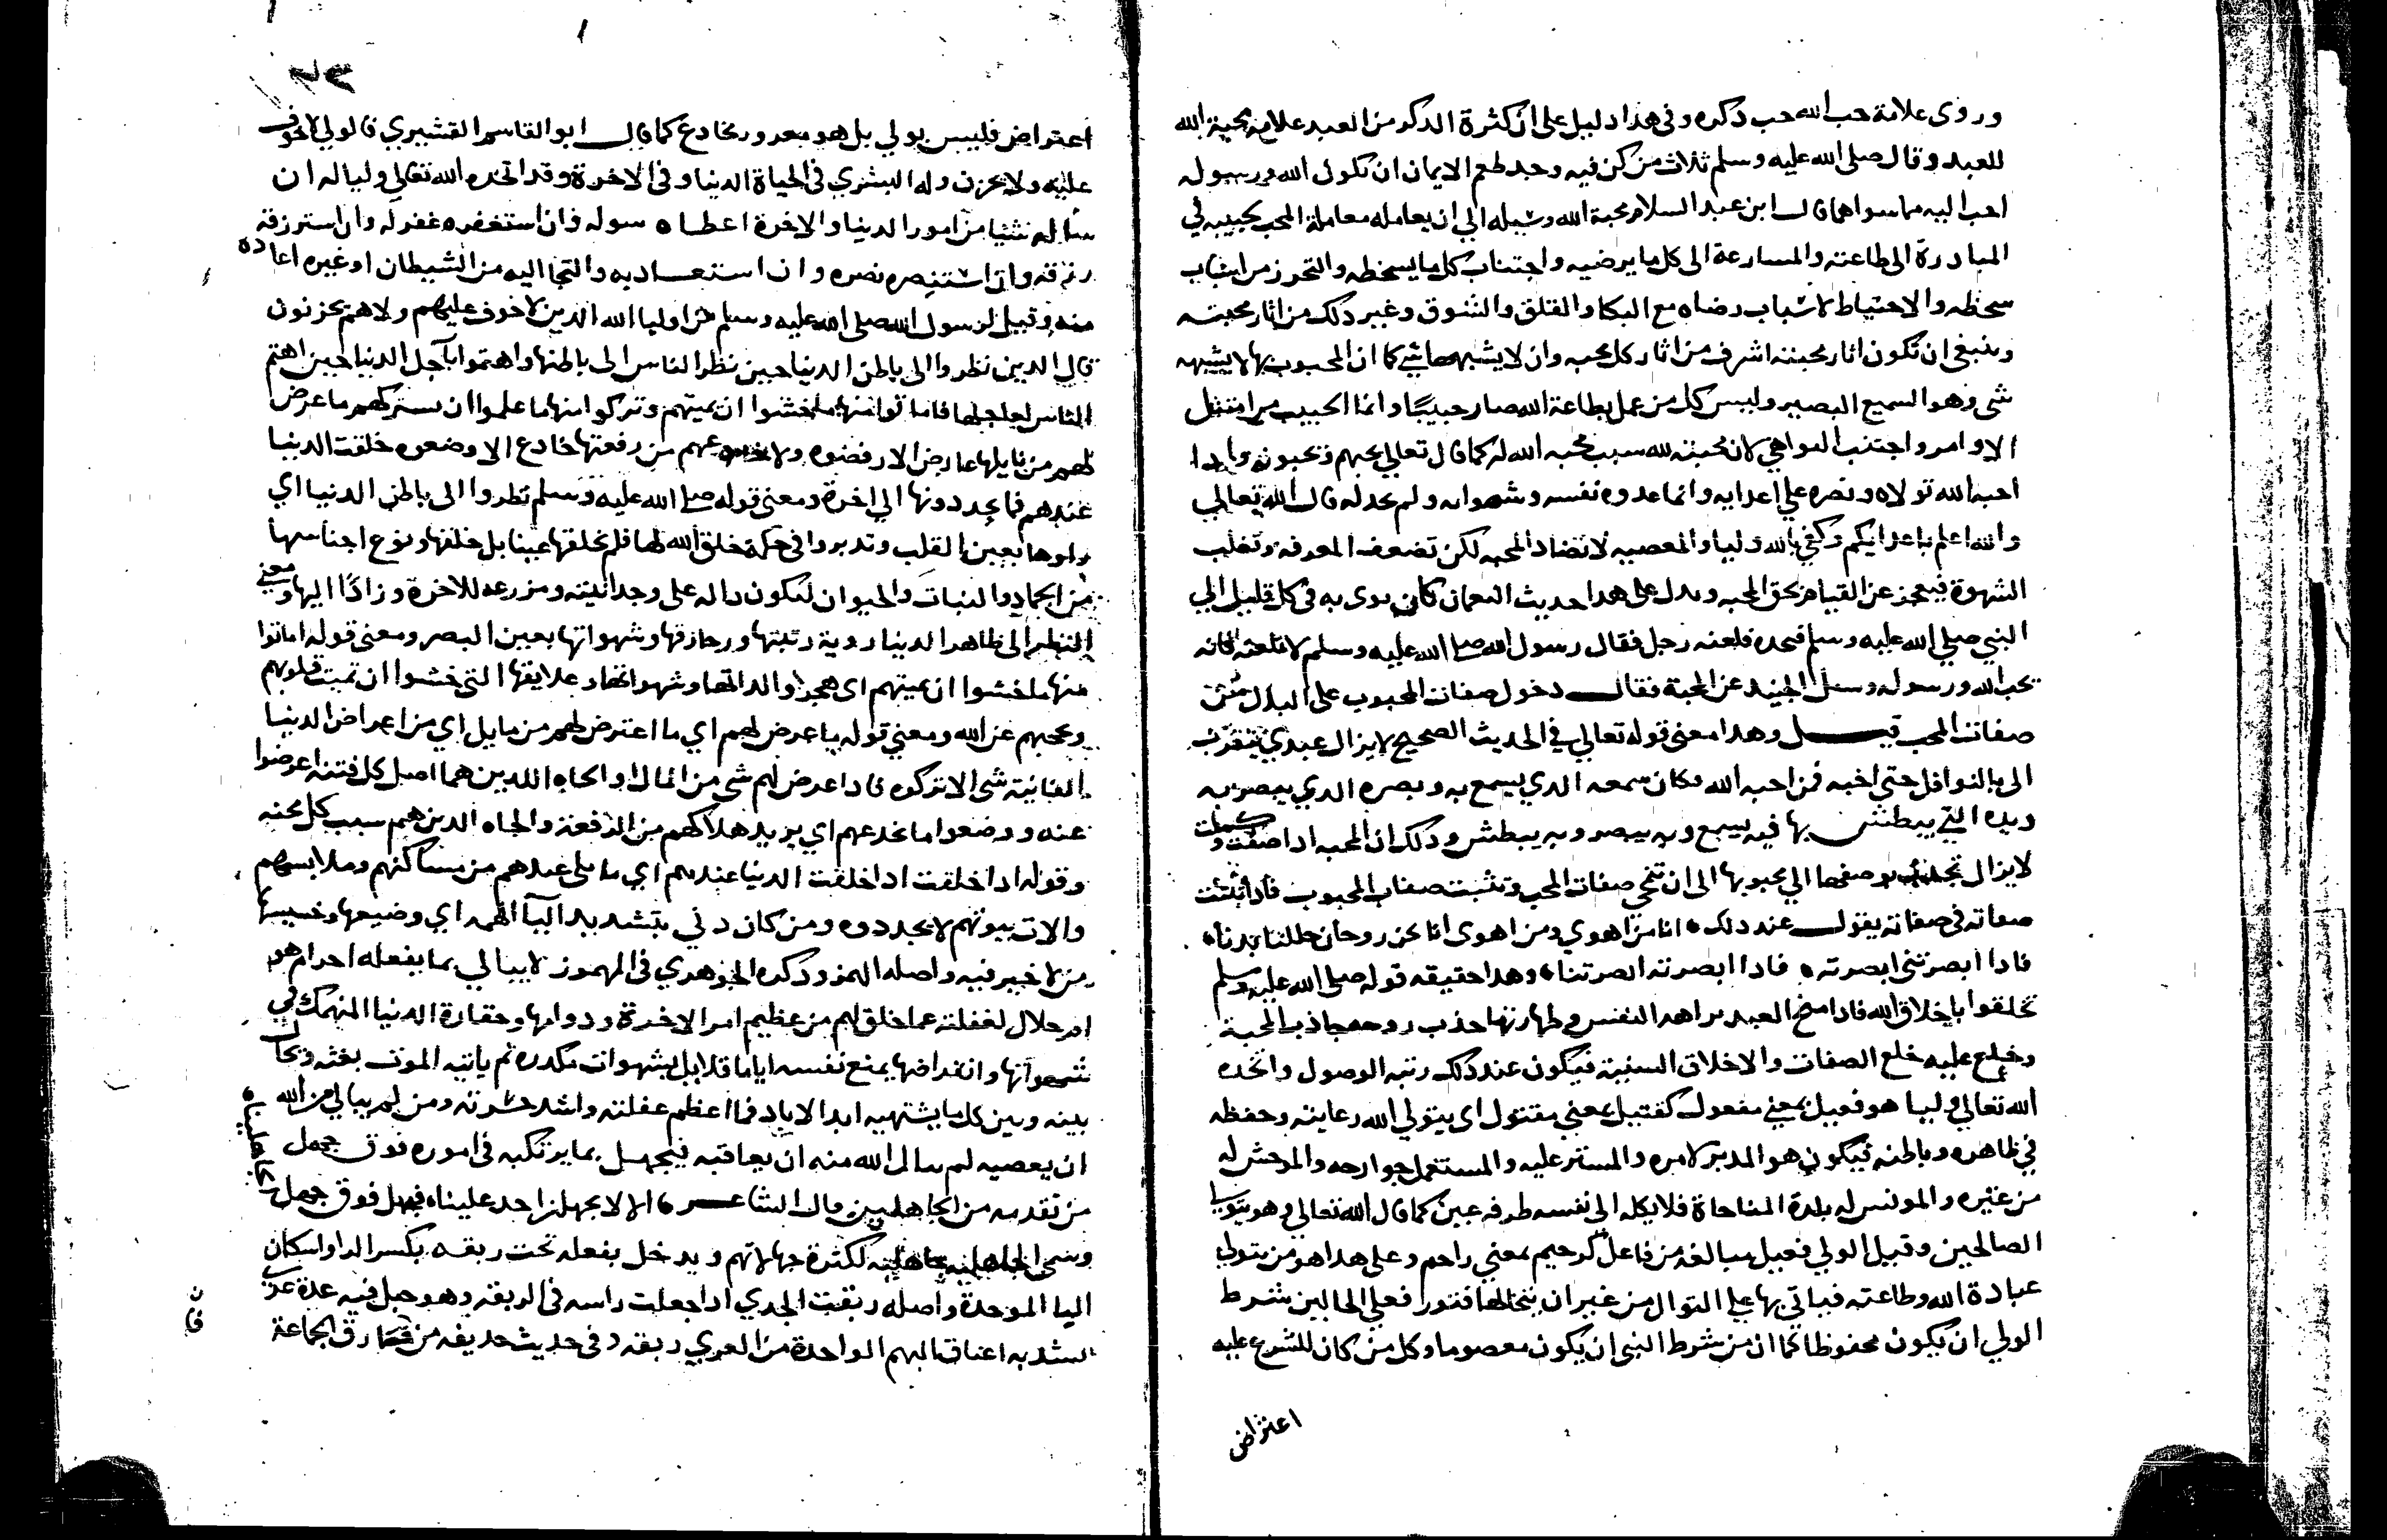 وروى علامة حب الله حب ذكره وفى هذا دليل على ان كثرة الذكر من العبد علامة محبة الله
للعبد وقال صلى الله عليه وسلم ثلاث من كن فيه وجد طعم الايمان ان يكون الله ورسوله
احب اليه مما سواهما قال ابن عبد السلام محبة الله وسيلة الي ان يعامله معاملة المحب لحبيبه في
المبادرة الى طاعته والمسارعة الى كل ما يرضيه واجتناب كل ما يسخطه والتحرز من اسباب
سخطه والاحتياط لاسباب رضاه مع البكا والقلق والشوق وغير ذلك من اثار محبته
وينبغى ان تكون اثار محبته اشرف من اثار كل محبه وان لا يشبهها شي كما ان المحبوب بها لا يشبهه
شى وهو السميع البصير وليس كل من عمل بطاعة الله صار حبيبًا وانما الحبيب من امتثل
الاوامر واجتنب النواهي لان محبته لله سبب محبه الله له كما قال تعالي يحبهم ويحبونه واذا
احبه الله تولاه ونصره علي اعدايه وانما عدوه نفسه وشهواته ولم يخذله قال الله تعالي
والله اعلم باعدايكم وكفي بالله وليا والمعصيه لا تضاد المحبه لكن تضعف المعرفه وتغلب
الشهوة فيعجز عن القيام بحق المحبه ويدل على هذا حديث النعمان كان يوتى به فى كل قليل الي
النبي صلي الله عليه وسلم فيحده فلعنه رجل فقال رسول الله صلى الله عليه وسلم لا تلعنه فانه
يحب الله ورسوله وسئل الجنيد عن المحبة فقال دخول صفات المحبوب على البدل من
صفات المحب قيل وهذا معنى قوله تعالي في الحديث الصحيح لا يزال عبدي يتقرب
الى بالنوافل حتى احبه فمن احبه الله فكان سمعه الذي يسمع به وبصره الذي يبصر به
ويده التي يبطش بها فبه يسمع وبه يبصر وبه يبطش وذلك ان المحبه اذا صفت وكملت
لا يزال تجذب بوصفها الي محبوبها الى ان تنمحي صفات المحب وتثبت صفات المحبوب فاذا ثبتت
صفاته فى صفاته يقول عند ذلك • انا من اهوي ومن اهوى انا نحن روحان حللنا بدنا •
فاذا ابصرتنى ابصرته • فاذا ابصرته ابصرتنا • وهذا حقيقه قوله صلى الله عليه وسلم
تخلقوا باخلاق الله فاذا العبد النفس وطهارتها جذب روحه بجاذب المحبة
وخلع عليه خلع الصفات والاخلاق السنية فيكون عند ذلك رتبه الوصول واتخذه
الله تعالي وليا هو فعيل بمعني مفعول كقتيل بمعني مقتول اي يتولي الله رعايته وحفظه
في ظاهره وباطنه فيكون هو المدبر لامره والمستر عليه والمستعمل جوارحه والموحش له
من غيره والمونس له بلذة المناجاة فلا يكله الى نفسه طرفه عين كما قال الله تعالي وهو يتولى
الصالحين وقيل الولي فعيل مبالغه من فاعل كرحيم بمعني راحم وعلى هذا هو من يتولي
عبادة الله وطاعته فياتي بها علي التوال من غير ان يتخللها فتور فعلي الحالين شرط
الولي ان يكون محفوظا كما ان من شرط النبي ان يكون معصوما وكل من كان للشرع عليه
اعتراض
٢٣
اعتراض فليس بولي بل هو مغرور مخادع كما قال ابو القاسم القشيري فالولي لا خوف
عليه ولا يحزن وله البشري فى الحياة الدنيا وفى الاخرة وقد اتخذه الله تعالي وليا له ان
سأله شيا من امور الدنيا والاخرة اعطاه سوله وان استغفره غفر له وان استرزقه
رزقه وان استنصره نصره وان استعاذ به والتجا اليه من الشيطان او غيره اعاذه
منه وقيل لرسول الله صلى الله عليه وسلم من اوليا الله الذين لا خوف عليهم ولا هم يحزنون
قال الذين نظروا الى باطن الدنيا حين نظر الناس الى باطنها واهتموا باجل الدنيا حين اهتم
الناس بعاجلها فاماتوا منها ما خشوا ان يميتهم وتركوا منها ما علموا ان سيتركهم ما عرض
لهم من نايلها عارض الا رفضوه ولا خدعهم من رفعتها خادع الا وضعوه خلقت الدنيا
عندهم فما يجددونها الي اخرة ومعني قوله صلى الله عليه وسلم نظروا الى باطن الدنيا اي
راوها بعين القلب وتدبروا فى حكمة خلق الله لها فلم يخلقها عبثا بل خلقها ونوع اجناسها
من الجماد والنبات والحيوان لتكون داله على وحدانيته ومزرعه للاخرة وزادًا اليها ومعني
النظر الى ظاهر الدنيا روية زينتها وزخارفها وشهواتها بعين البصر ومعنى قوله اماتوا
منها ما خشوا ان يميتهم اى هجروا لذاتها وشهواتها وعلايقها التى خشوا ان تميت قلوبهم
وتحجبهم عن الله ومعني قوله ما عرض لهم اي ما اعترض لهم من نايل اي من اعراض الدنيا
الفانية شى الا تركوه فاذا عرض لهم شى من المال او الجاه اللذين هما اصل كل فتنه اعرضوا
عنه ووضعوا ما خدعهم اي يريد هلاكهم من الرفعة والجاه الذين هم سبب كل محنه
وقوله اذا خلقت اذا خلقت الدنيا عندهم اي ما بلى عندهم من مساكنهم وملابسهم
والات بيوتهم لا يجددوه ومن كان دني بتشديد اليآ الهمه اي وضيعها وخسيسها
من لا خير فيه واصله الهمز وذكره الجوهري فى المهموز لا يبالي بما يفعله احرام هو
ام حلال لغفلته عما خلق لهم من عظيم امر الاخرة ودوامها وحقارة الدنيا المنهمك في
شهواتها وانقراضها يمتع نفسه اياما قلايل بشهوات مكدره ثم ياتيه الموت بغته ويحال
بينه وبين كل ما يشتهيه ابد الاباد فما اعظم غفلته واشد حسرته ومن لم يبالي من الله
ان يعصيه لم يبال الله منه ان يعاقبه فيجهل بما يرتكبه فى اموره فوق جهل
من تقدمه من الجاهلين قال الشاعر • الا لا يجهلن احد علينا • فنجهل فوق جهل
الجاهلينا
وسمى الجاهليه جاهليه لكثرة جهالاتهم ويدخل بفعله تحت ربقه بكسر الرا واسكان
اليا الموحدة واصله ربقت الجدي اذا جعلت راسه فى الربقه وهو حبل فيه عدة عري
تشد به اعناق البهم الواحدة من العري ربقه وفى حديث حذيفه من فارق الجماعة